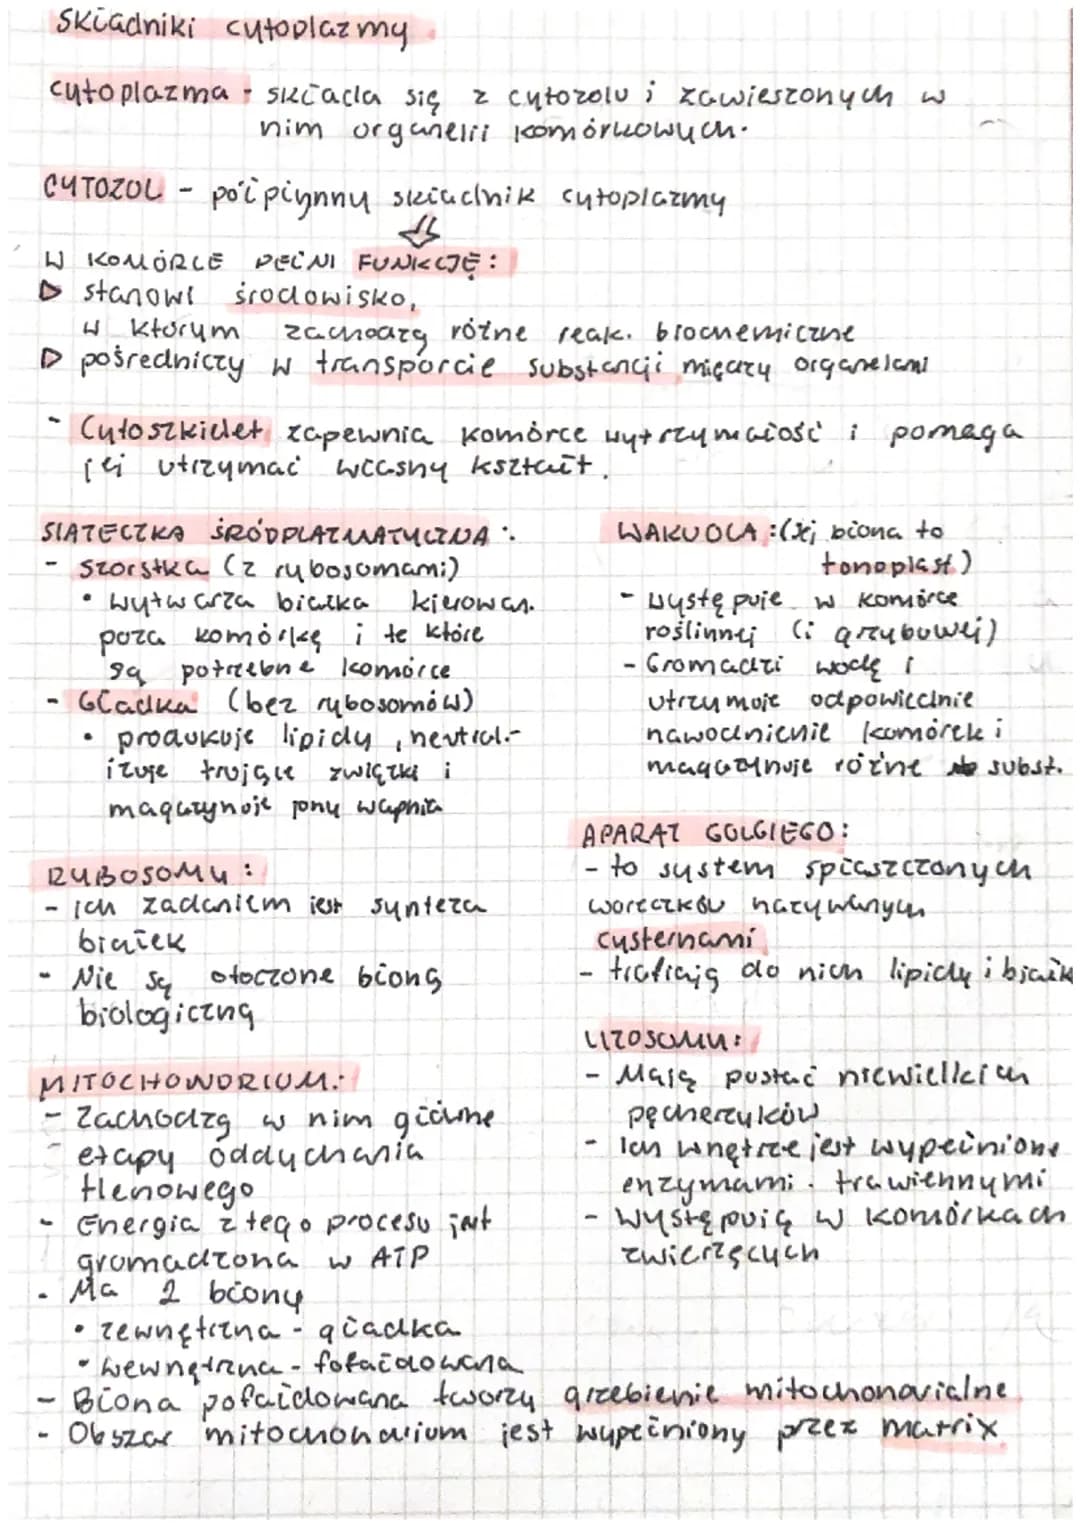 Składniki cytoplazmy
cytoplazma - składa się z cytozolu i zawieszonych w
nim organelli komórkowych.
CYTOZOL - półpłynny składnik cytoplazmy
⇓
W KOMÓRCE PEŁNI FUNKCJĘ:
▷ stanowi środowisko,
w którym zachodzą różne reak. biochemiczne
▷ pośredniczy w transporcie substancji między organelami
- Cytoszkielet zapewnia komórce wytrzymałość i pomaga
jej utrzymać własny kształt.
SIATECZKA ŚRÓDPLAZMATYCZNA:
- szorstka (z rybosomami)
• wytwarza białka kierowan.
poza komórkę i te które
są potrzebne komórce
- Gładka (bez rybosomów)
• produkuje lipidy, neutral.-
izuje trujące związki i
magazynuje jony wapnia
RYBOSOMY:
- ich zadaniem jest synteza
białek
- Nie są otoczone błoną
biologiczną
MITOCHONDRIUM:
- Zachodzą w nim główne
etapy oddychania
tlenowego
- Energia z tego procesu jest
gromadzona w ATP
- Ma 2 błony
• zewnętrzna - gładka
• wewnętrzna - pofałdowana
- Błona pofałdowana tworzy grzebienie mitochondrialne
- Obszar mitochondrium jest wypełniony przez matrix
WAKUOLA: (jej błona to
tonoplast)
- występuje w komórce
roślinnej (i grzybowej)
- Gromadzi wodę i
utrzymuje odpowiednie
nawodnienie komórek i
magazynuje różne subst.
APARAT GOLGIEGO:
- to system spłaszczonych
woreczków nazywanych
cysternami
- trafiają do nich lipidy i białk
LIZOSOMY:
- Mają postać niewielkich
pęcherzyków
- Ich wnętrze jest wypełnione
enzymami trawiennymi
- Występują w komórkach
zwierzęcych